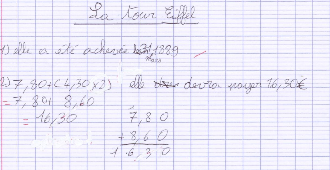 La tour Eiffel
1) elle a été achevée 1889
Mars
2) 7,80+(4,30×2) elle devra payer 16,30€
= 7,80+ 8,60
= 16,30
7,80
+ 8,60
1 6,3 0